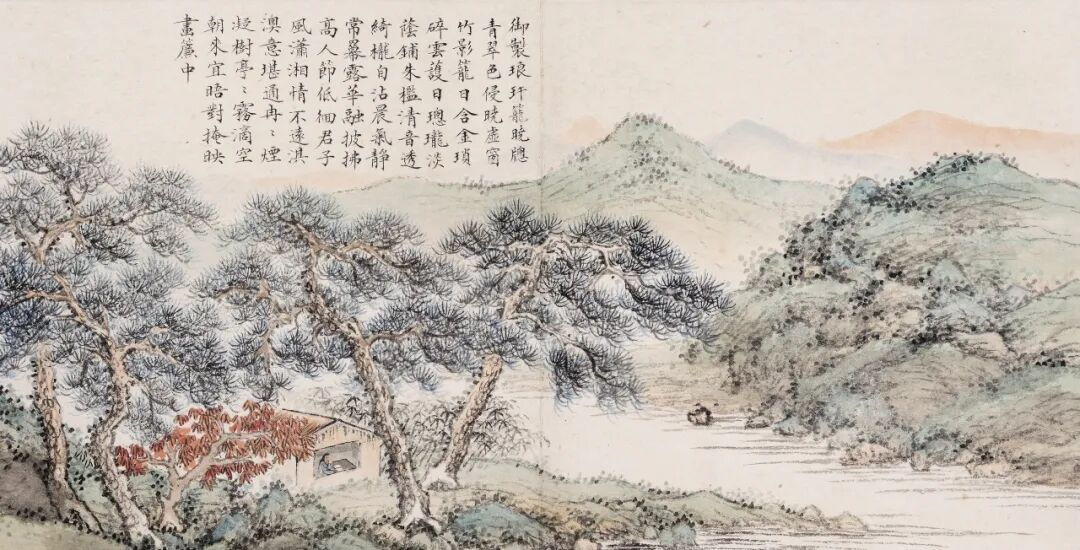 御製琅玕籠曉牕
青翠色侵曉虛窗
竹影籠日合金瑣
碎雲護日璁瓏淡
蔭鋪朱檻清音透
綺櫳自沾晨氣靜
常暴露華融披拂
高人節低徊君子
風瀟湘情不遠淇
澳意堪通冉〻煙
凝樹亭〻霧滴空
朝來宜晤對掩映
畫簾中